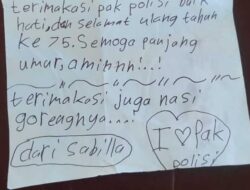 terimakasi pak polisi baik
hati,dan selamat ulang tahan
ke 75. Semoga panjang
umur, aminnn!..!
terimakasi juga nasi
goreagnya....!
dari sabilla
I ♡ Pak
polisi